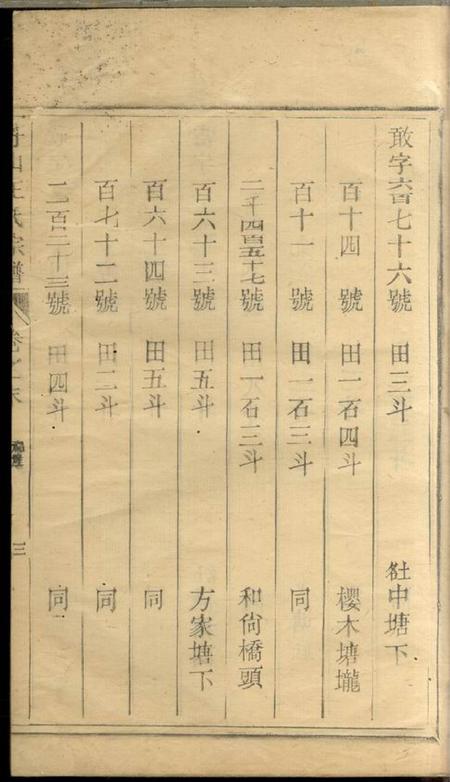 敢字六百七十六號 田三斗 社中塘下
百十四號 田一石四斗 櫻木塘壠
百十一號 田一石三斗 同
二千四百五十七號 田一石三斗 和尙橋頭
百六十三號 田五斗 方家塘下
百六十四號 田五斗 同
百七十二號 田二斗 同
二百二十三號 田四斗 同
山王氏宗譜 卷之末 三